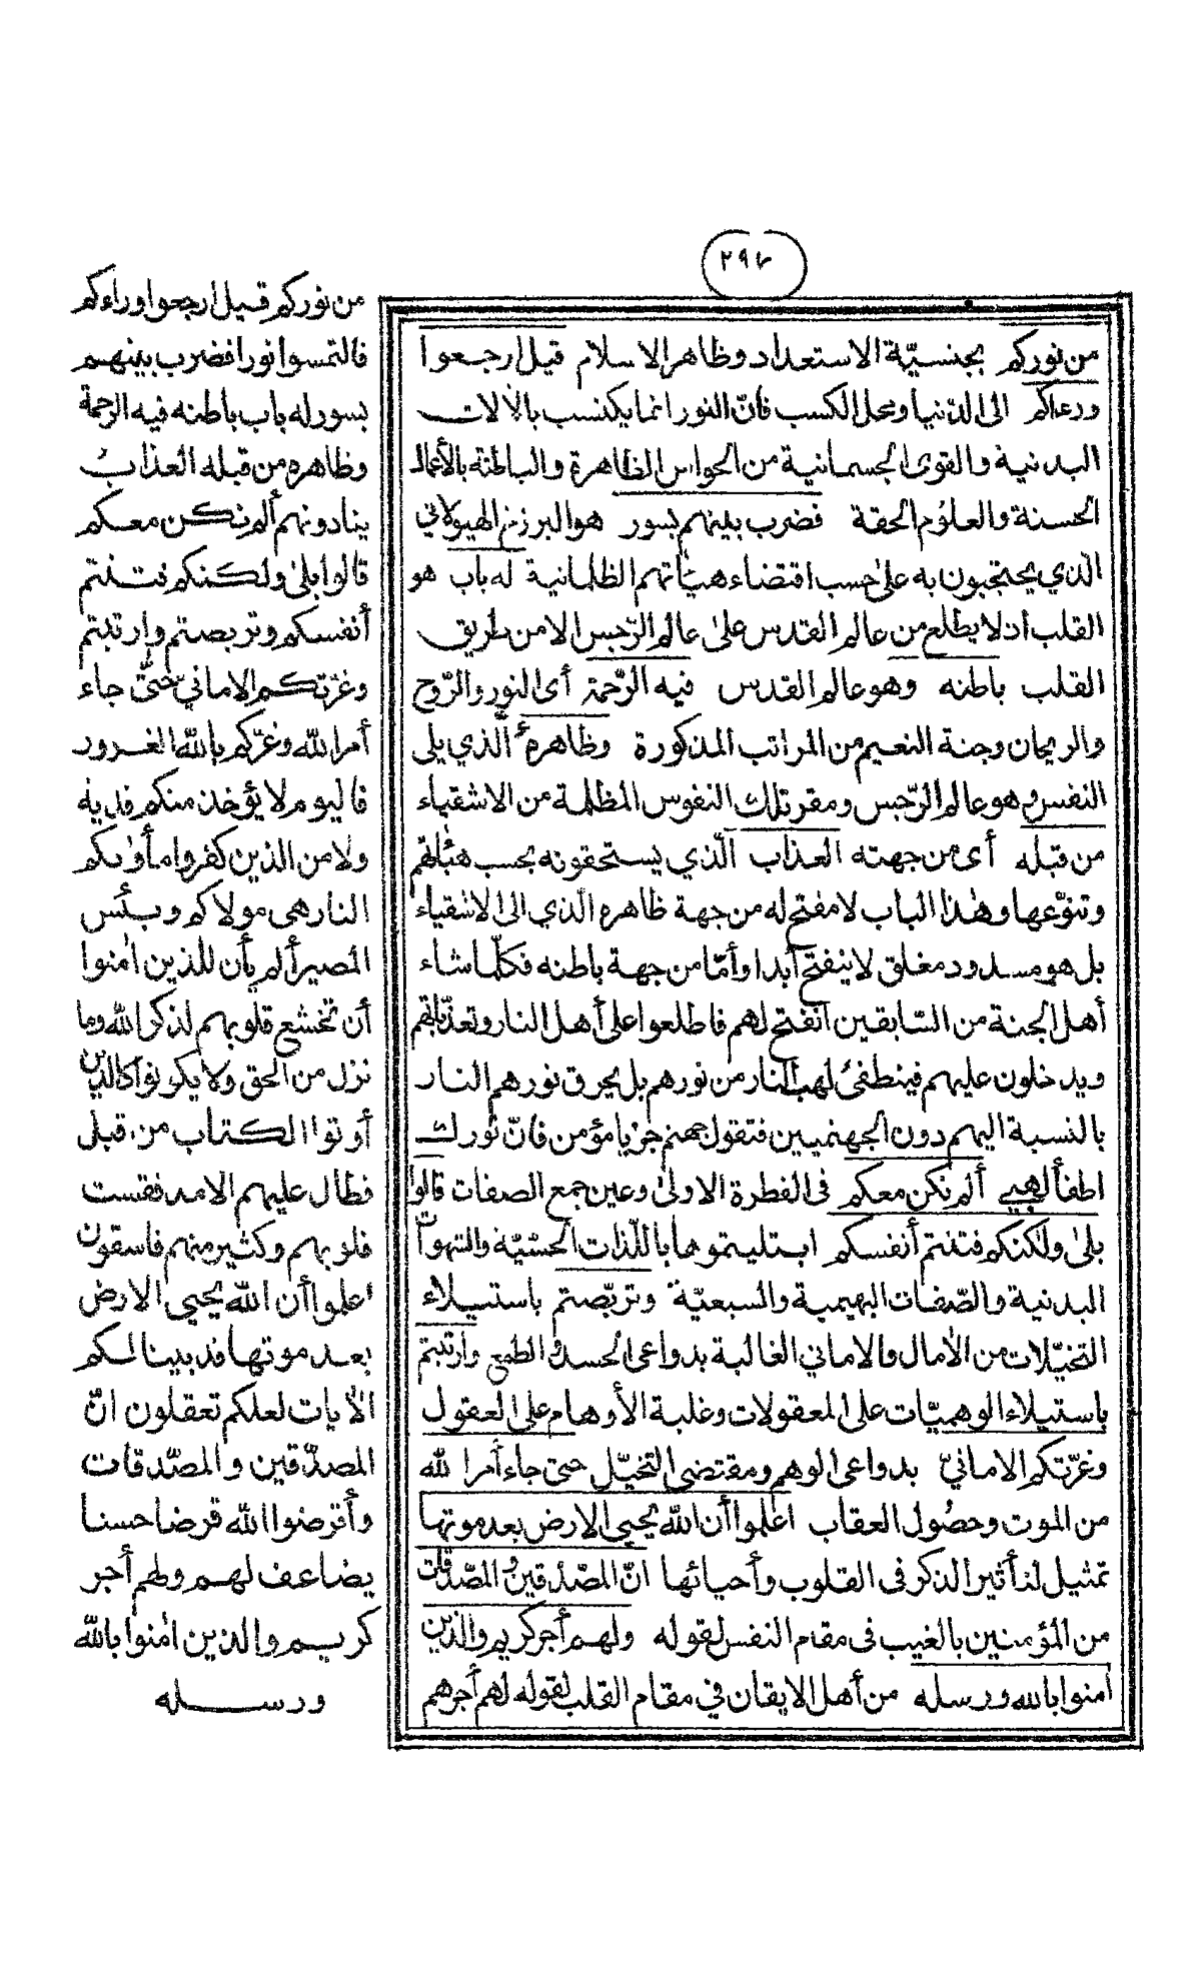 ٢٩٧
من نوركم بجنسيّة الاستعداد وظاهر الاسلام قيل ارجعوا
وراءكم الى الدّنيا ومحل الكسب فانّ النور انما يكتسب بالآلات
البدنية والقوى الجسمانية من الحواس الظاهرة والباطنة بالأعمال
الحسنة والعلوم الحقة فضرب بينهم بسور هو البرزخ الهيولاني
الّذي يحتجبون به على حسب اقتضاء هيئاتهم الظلمانية له باب هو
القلب اذ لا يطلع من عالم القدس على عالم الرّجس الا من طريق
القلب باطنه وهو عالم القدس فيه الرّحمة أى النور والرّوح
والريحان وجنة النعيم من المراتب المذكورة وظاهره الّذي يلى
النفس وهو عالم الرّجس ومقر تلك النفوس المظلمة من الاشقياء
من قبله أى من جهته العذاب الّذي يستحقونه بحسب هيئاتهم
وتنوّعها وهٰذا الباب لا مفتح له من جهة ظاهره الّذي الى الاشقياء
بل هو مسدود مغلق لا ينفتح أبدا وأمّا من جهة باطنه فكلّما شاء
أهل الجنة من السّابقين انفتح لهم فاطلعوا على أهل النار وتعذّباتهم
ويدخلون عليهم فينطفئ لهب النار من نورهم بل يحرق نورهم النار
بالنسبة اليهم دون الجهنميين فتقول جهنم جز يا مؤمن فانّ نورك
اطفأ لهبي ألم نكن معكم فى الفطرة الاولى وعين جمع الصفات قالوا
بلىٰ ولٰكنكم فتنتم أنفسكم ابتليتموها باللّذات الحسّيّة والشهوات
البدنية والصّفات البهيمية والسبعيّة وتربّصتم باستيلاء
التخيّلات من الآمال والاماني الغالبة بدواعى الحسد والطمع وارتبتم
باستيلاء الوهميّات على المعقولات وغلبة الأوهام على العقول
وغرّتكم الامانيّ بدواعى الوهم ومقتضى التخيّل حتى جاء أمر الله
من الموت وحصول العقاب اعلموا أن الله يحيي الارض بعد موتها
تمثيل لتأثير الذكر فى القلوب وأحيائها انّ المصّدّقين والمصّدّقات
من المؤمنين بالغيب فى مقام النفس لقوله ولهم أجر كريم والذين
اٰمنوا بالله ورسله من أهل الايقان في مقام القلب لقوله لهم أجرهم
من نوركم قيل ارجعوا وراءكم
فالتمسوا نورا فضرب بينهم
بسور له باب باطنه فيه الرحمة
وظاهره من قبله العذاب
ينادونهم ألم نكن معكم
قالوا بلىٰ ولٰكنكم فتنتم
أنفسكم وتربصتم وارتبتم
وغرّتكم الاماني حتّىٰ جاء
أمر الله وغرّكم بالله الغرور
فاليوم لا يؤخذ منكم فدية
ولا من الذين كفروا مأوٰىكم
النار هى مولاكم وبئس
المصير ألم يأن للذين اٰمنوا
أن تخشع قلوبهم لذكر الله وما
نزل من الحق ولا يكونوا كالذين
أوتوا الكتاب من قبل
فطال عليهم الامد فقست
قلوبهم وكثير منهم فاسقون
اعلموا أن الله يحيي الارض
بعد موتها قد بينا لكم
الاٰيات لعلكم تعقلون انّ
المصدّقين والمصّدقات
وأقرضوا الله قرضا حسنا
يضاعف لهم ولهم أجر
كريم والذين اٰمنوا بالله
ورسله